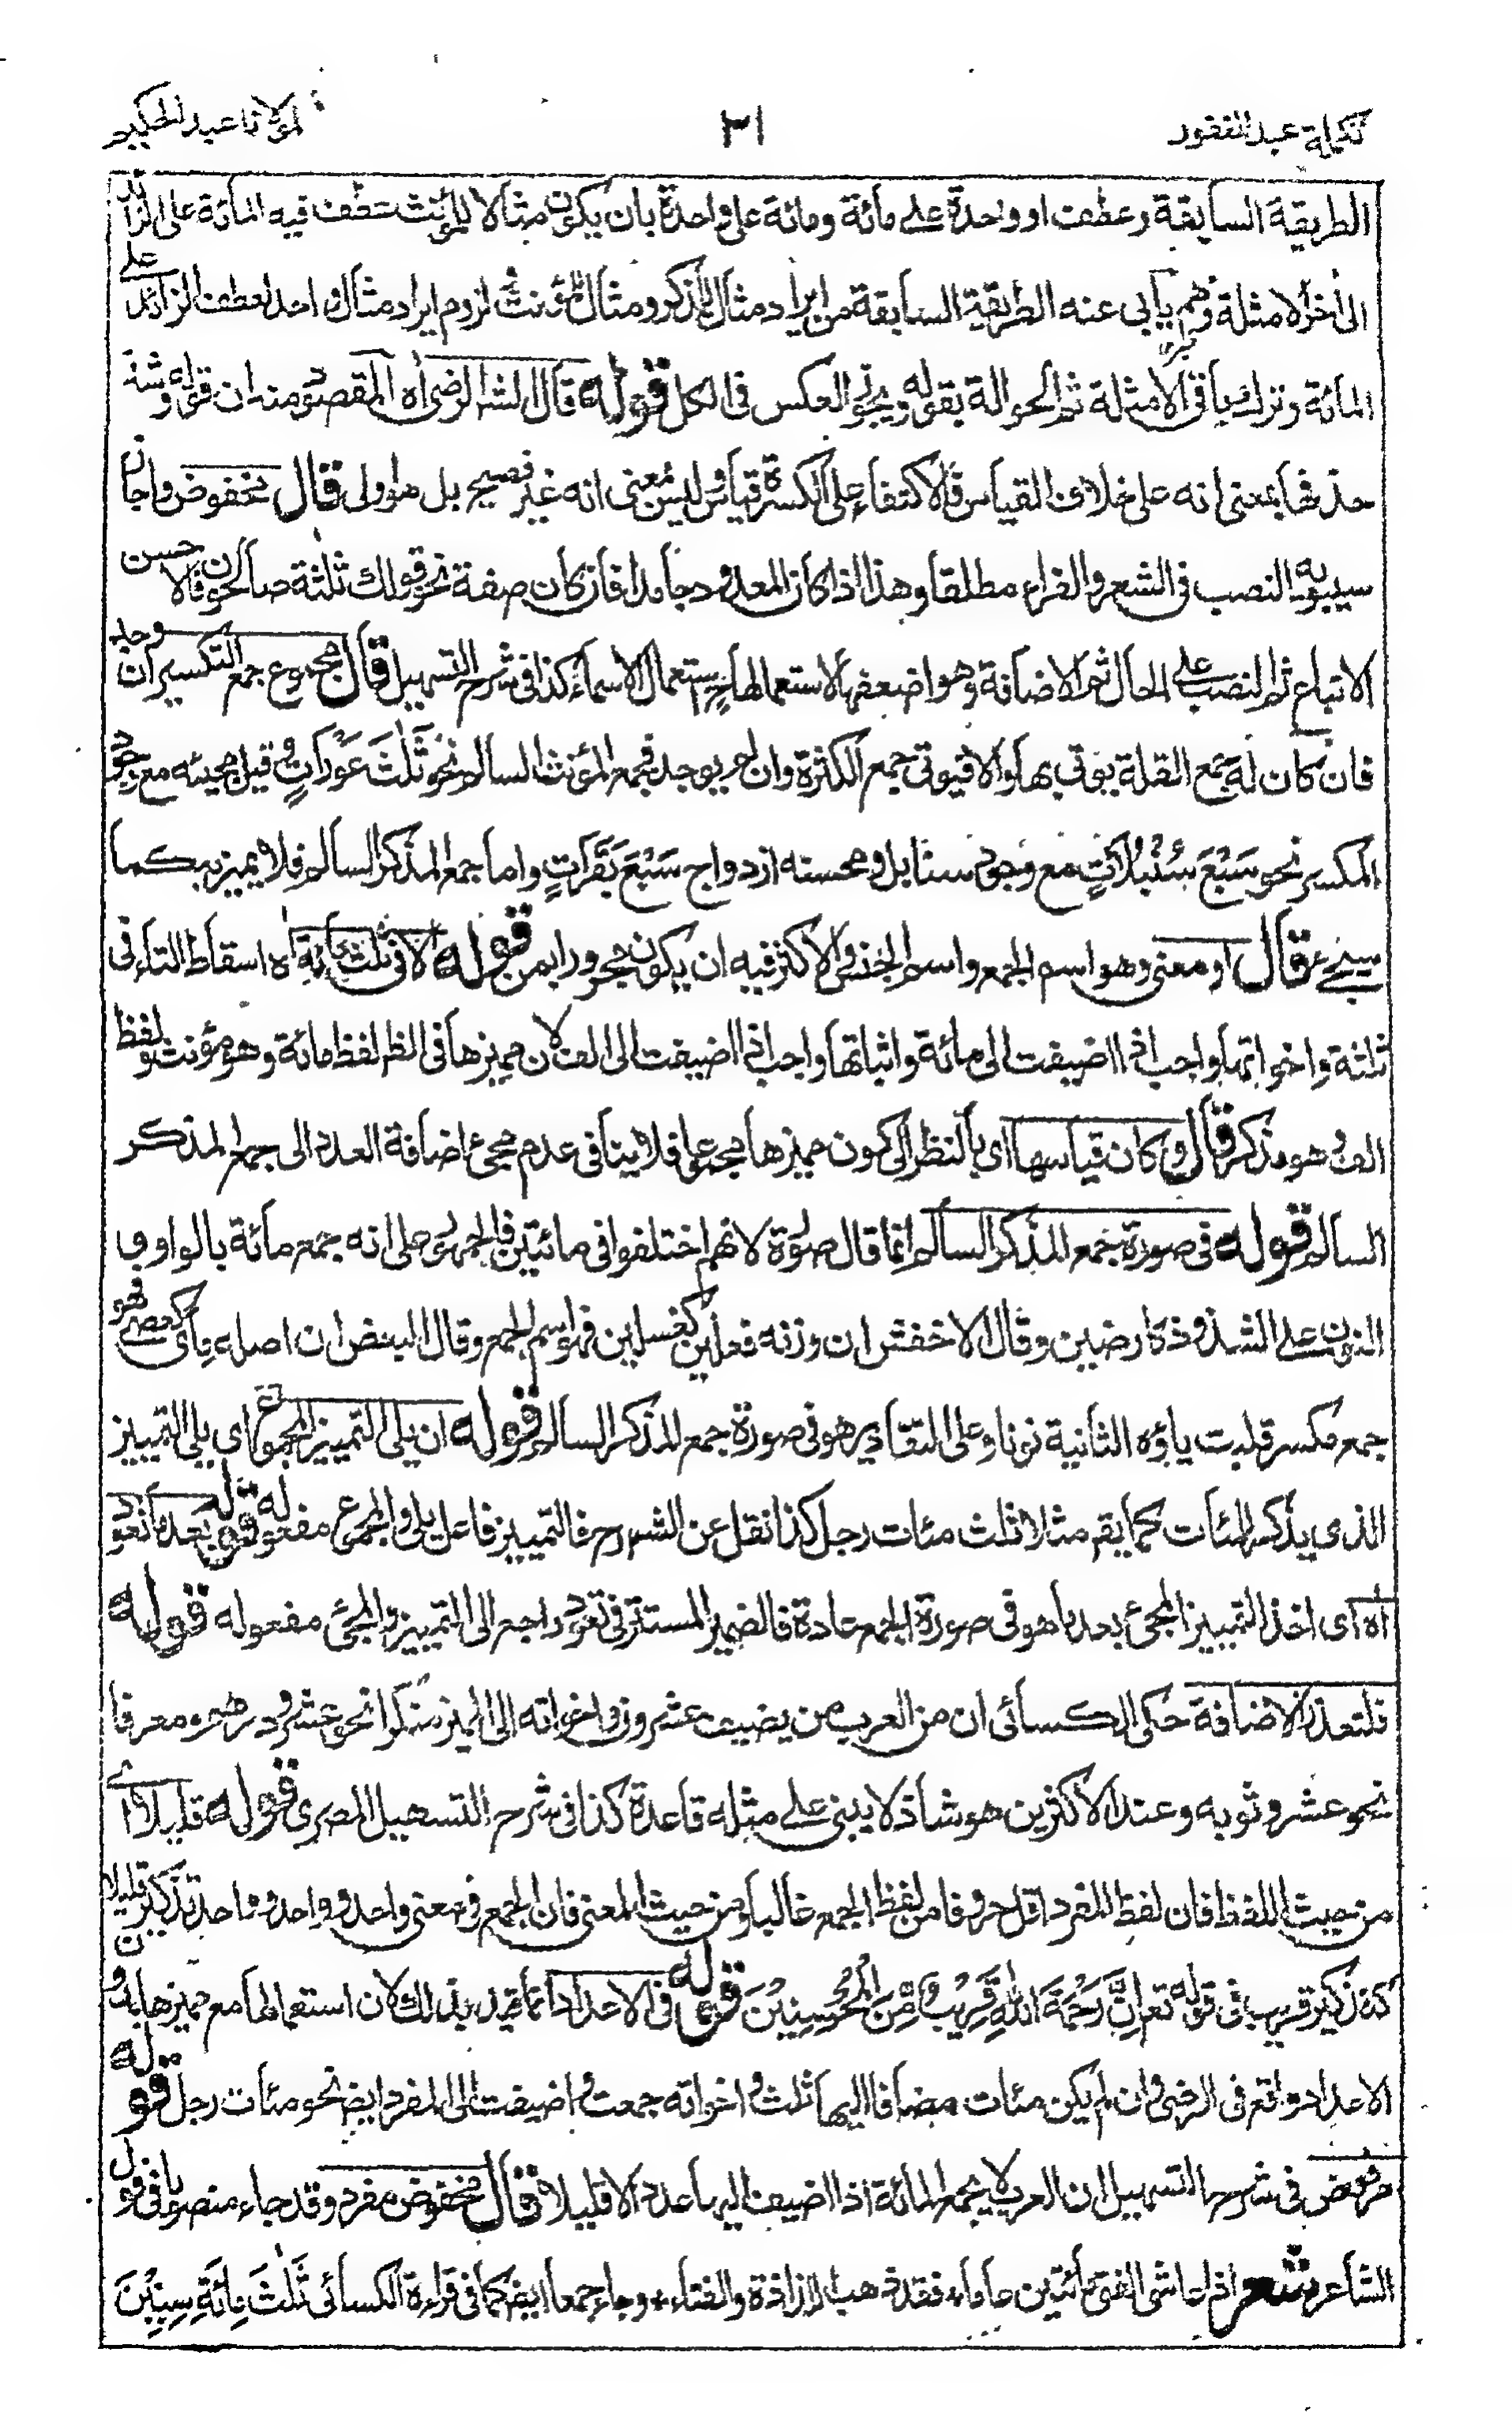 تكملة عبد الغفور ٣١ لمولانا عبد الحكيم
الطريقة السابقة وعطفت او واحدة على مائة ومائة على واحدة بان يكون مثالا للمؤنث تعطف فيه المائة على الزائد
الى أخر الامثلة وهم يأبى عنه الطريقة السابقة من ايراد مثال للمذكر ومثال للمؤنث لزوم ايراد مثال واحد لعطف الزائد على
المائة وترك باقى الامثلة ثم الحوالة بقوله ويجوز العكس فى الكل قوله قال الشـ الرضى اه المقصود منه ان قوله وشذ
حذفها بمعنى انه على خلاف القياس فالاكتفاء على الكسرة قياس وليس معنى انه غير فصيح بل هو اولى قال مخفوض واجاز
سيبويه النصب فى الشعر والفراء مطلقا وهذا اذا كان المعدود جامدا فان كان صفة نحو قولك ثلثة صالحون فالاحسن
الاتباع ثم النصب على الحال ثم الاضافة وهو اضعفها لاستعمالها ح استعمال الاسماء كذا فى شرح التسهيل قال مجموع جمع التكسير ان وجد
فان كان له جمع القلة يؤتى بها والا فيؤتى جمع الكثرة وان لم يوجد فجمع المؤنث السالم نحو ثَلٰثَ عَوْرَاتٍ وقيل مجيئه مع وجود
المكسر نحو سَبْعَ سُنْبُلَاتٍ مع وجود سنابل ومحسنه ازدواج سَبْعَ بَقَرَاتٍ واما جمع المذكر السالم فلا يميز به كما
سيجئ قال او معنى وهو اسم الجمع واسم الجنس والاكثر فيه ان يكون مجرورا بمن قوله الا فى ثلث مائة اه اسقاط التاء فى
ثلثة واخواتها واجب اذا اضيفت الى مائة واثباتها واجب اذا اضيفت الى الف لان مميزها فى الظـ لفظ مائة وهو مؤنث ولفظ
الف وهو مذكر قال وكان قياسها اى بالنظر الى كون مميزها مجموعا فلا ينافى عدم مجئ اضافة العدد الى جمع المذكر
السالم قوله فى صورة جمع المذكر السالم انما قال صورة لانهم اختلفوا فى مائتين فالجمهور على انه جمع مائة بالواو و
النون على الشذوذ كارضين وقال الاخفش ان وزنه فعلين كغسلين فهو اسم الجمع وقال البعض ان اصله مأى كعصى فهو
جمع مكسر قلبت ياؤه الثانية نونا وعلى التقادير هو فى صورة جمع المذكر السالم قوله ان يلى التمييز المجموع اى يلى التمييز
الذى يذكر المئات كما يقـ مثلا ثلث مئات رجل كذا نقل عن الشرح فالتمييز فاعل يلى والمجموع مفعوله قوله بعد ما تعود
اه اى اخذ التمييز المجئ بعد ما هو فى صورة الجمع عادة فالضمير المستتر فى تعود راجع الى التمييز والمجئ مفعوله قوله
فلتعذر الاضافة حكى الكسائى ان من العرب من يضيف عشرون واخواته الى المميز منكرا نحو عشرو درهم ومعرفا
نحو عشرو ثوبه وعند الاكثرين هو شاذ لا يبنى على مثله قاعدة كذا فى شرح التسهيل المصرى قوله قليلا اى
من حيث اللفظ فان لفظ المفرد اقل حروفا من لفظ الجمع غالبا ومن حيث المعنى فان الجمع فى معنى واحد وواحد وواحد تذكير قليلا
كتذكير قريب فى قوله تعـ اِنَّ رَحْمَةَ اللهِ قَرِيْبٌ مِّنَ الْمُحْسِنِيْنَ قوله فى الاعداد انما قيد بذلك لان استعمالها مع مميزها بدون
الاعداد واقع فى الرضى وان لم يكن مئات مضافا اليها ثلث واخواته جمعت واضيفت الى المفرد ايضـ نحو مئات رجل قوله
مرفوض فى شرح التسهيل ان العرب لا يجمع المائة اذا اضيف اليها عدد الا قليلا قال مخفوض مفرد وقد جاء منصوبا فى قول
الشاعر شعر اذا عاش الفتى مأتين عاما، فقد ذهب اللذاذة والفتاء، وجاء جمعا ايضـ كما فى قراءة الكسائى ثَلٰثَ مِائَةِ سِنِيْنَ